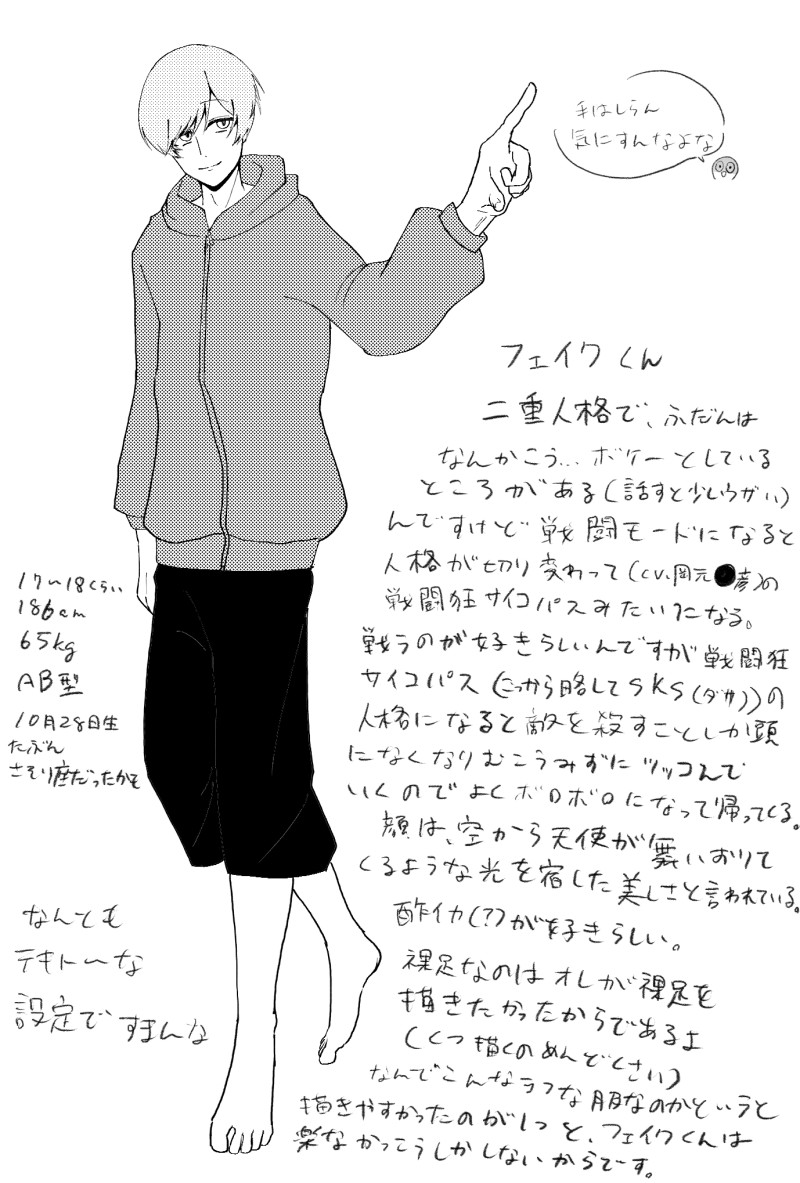 手はしらん
気にすんなよな
フェイクくん
二重人格で、ふだんは
なんかこう…ボケーとしている
ところがある(話すと少しうざい)
んですけど戦闘モードになると
人格が切り変わって(CV.岡元●彦)の
戦闘狂サイコパスみたいになる。
戦うのが好きらしいんですが戦闘狂
サイコパス(だっから略してSKS(ダサ))の
人格になると敵を殺すことしか頭
になくなりむこうみずにツッコんで
いくのでよくボロボロになって帰ってくる。
顔は、空から天使が舞いおりて
くるような光を宿した美しさと言われている。
酢イカ(?)が好きらしい。
裸足なのはオレが裸足を
描きたかったからであるよ
(くつ描くのめんどくさい)
なんでこんなラフな服なのかというと
描きやすかったのが1つと、フェイクくんは
楽なかっこうしかしないからです。
17〜18くらい
186cm
65kg
AB型
10月28日生
たぶん
さそり座だったかも
なんとも
テキトーな
設定ですまんな